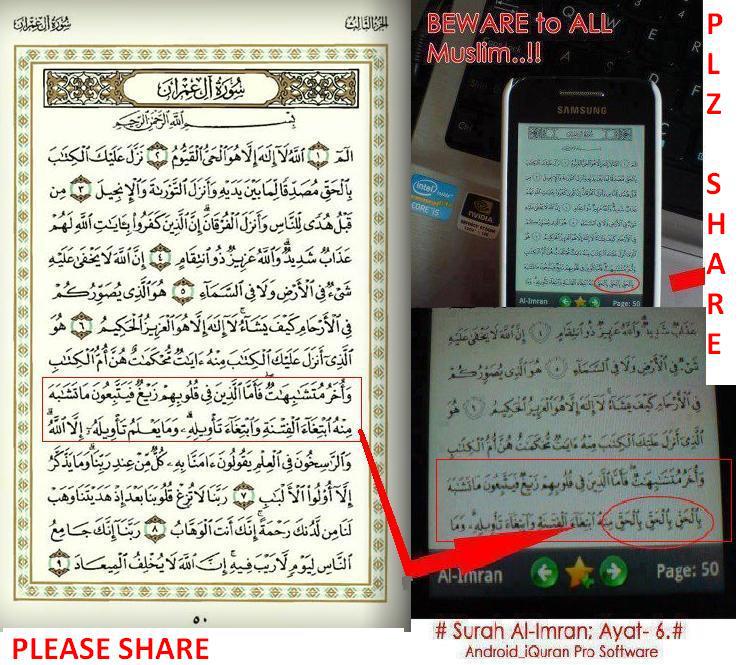 سُورَةُ آلِ عِمْرَانَ
الجزء الثالث
سُورَةُ آلِ عِمْرَانَ
بِسْمِ اللَّهِ الرَّحْمَٰنِ الرَّحِيمِ
الٓمٓ ١ ٱللَّهُ لَآ إِلَٰهَ إِلَّا هُوَ ٱلْحَىُّ ٱلْقَيُّومُ ٢ نَزَّلَ عَلَيْكَ ٱلْكِتَٰبَ
بِٱلْحَقِّ مُصَدِّقًا لِّمَا بَيْنَ يَدَيْهِ وَأَنزَلَ ٱلتَّوْرَىٰةَ وَٱلْإِنجِيلَ ٣ مِن
قَبْلُ هُدًى لِّلنَّاسِ وَأَنزَلَ ٱلْفُرْقَانَ ۗ إِنَّ ٱلَّذِينَ كَفَرُوا۟ بِـَٔايَٰتِ ٱللَّهِ لَهُمْ
عَذَابٌ شَدِيدٌ ۗ وَٱللَّهُ عَزِيزٌ ذُو ٱنتِقَامٍ ٤ إِنَّ ٱللَّهَ لَا يَخْفَىٰ عَلَيْهِ
شَىْءٌ فِى ٱلْأَرْضِ وَلَا فِى ٱلسَّمَآءِ ٥ هُوَ ٱلَّذِى يُصَوِّرُكُمْ
فِى ٱلْأَرْحَامِ كَيْفَ يَشَآءُ ۚ لَآ إِلَٰهَ إِلَّا هُوَ ٱلْعَزِيزُ ٱلْحَكِيمُ ٦ هُوَ
ٱلَّذِىٓ أَنزَلَ عَلَيْكَ ٱلْكِتَٰبَ مِنْهُ ءَايَٰتٌ مُّحْكَمَٰتٌ هُنَّ أُمُّ ٱلْكِتَٰبِ
وَأُخَرُ مُتَشَٰبِهَٰتٌ ۖ فَأَمَّا ٱلَّذِينَ فِى قُلُوبِهِمْ زَيْغٌ فَيَتَّبِعُونَ مَا تَشَٰبَهَ
مِنْهُ ٱبْتِغَآءَ ٱلْفِتْنَةِ وَٱبْتِغَآءَ تَأْوِيلِهِۦ ۗ وَمَا يَعْلَمُ تَأْوِيلَهُۥٓ إِلَّا ٱللَّهُ ۗ
وَٱلرَّٰسِخُونَ فِى ٱلْعِلْمِ يَقُولُونَ ءَامَنَّا بِهِۦ كُلٌّ مِّنْ عِندِ رَبِّنَا ۗ وَمَا يَذَّكَّرُ
إِلَّآ أُو۟لُوا۟ ٱلْأَلْبَٰبِ ٧ رَبَّنَا لَا تُزِغْ قُلُوبَنَا بَعْدَ إِذْ هَدَيْتَنَا وَهَبْ
لَنَا مِن لَّدُنكَ رَحْمَةً ۚ إِنَّكَ أَنتَ ٱلْوَهَّابُ ٨ رَبَّنَآ إِنَّكَ جَامِعُ
ٱلنَّاسِ لِيَوْمٍ لَّا رَيْبَ فِيهِ ۚ إِنَّ ٱللَّهَ لَا يُخْلِفُ ٱلْمِيعَادَ ٩
٥٠
PLEASE SHARE
BEWARE to ALL
Muslim..!!
SAMSUNG
intel
CORE i5
NVIDIA
Al-Imran
Page: 50
PLZ SHARE
عَذَابٌ شَدِيدٌ ۗ وَٱللَّهُ عَزِيزٌ ذُو ٱنتِقَامٍ ٤ إِنَّ ٱللَّهَ لَا يَخْفَىٰ عَلَيْهِ
شَىْءٌ فِى ٱلْأَرْضِ وَلَا فِى ٱلسَّمَآءِ ٥ هُوَ ٱلَّذِى يُصَوِّرُكُمْ
فِى ٱلْأَرْحَامِ كَيْفَ يَشَآءُ ۚ لَآ إِلَٰهَ إِلَّا هُوَ ٱلْعَزِيزُ ٱلْحَكِيمُ ٦ هُوَ
ٱلَّذِىٓ أَنزَلَ عَلَيْكَ ٱلْكِتَٰبَ مِنْهُ ءَايَٰتٌ مُّحْكَمَٰتٌ هُنَّ أُمُّ ٱلْكِتَٰبِ
وَأُخَرُ مُتَشَٰبِهَٰتٌ ۖ فَأَمَّا ٱلَّذِينَ فِى قُلُوبِهِمْ زَيْغٌ فَيَتَّبِعُونَ مَا تَشَٰبَهَ
بِٱلْحَقِّ بِٱلْحَقِّ بِٱلْحَقِّ مِنْهُ ٱبْتِغَآءَ ٱلْفِتْنَةِ وَٱبْتِغَآءَ تَأْوِيلِهِۦ ۗ وَمَا
Al-Imran
Page: 50
# Surah Al-Imran; Ayat- 6.#
Android_iQuran Pro Software